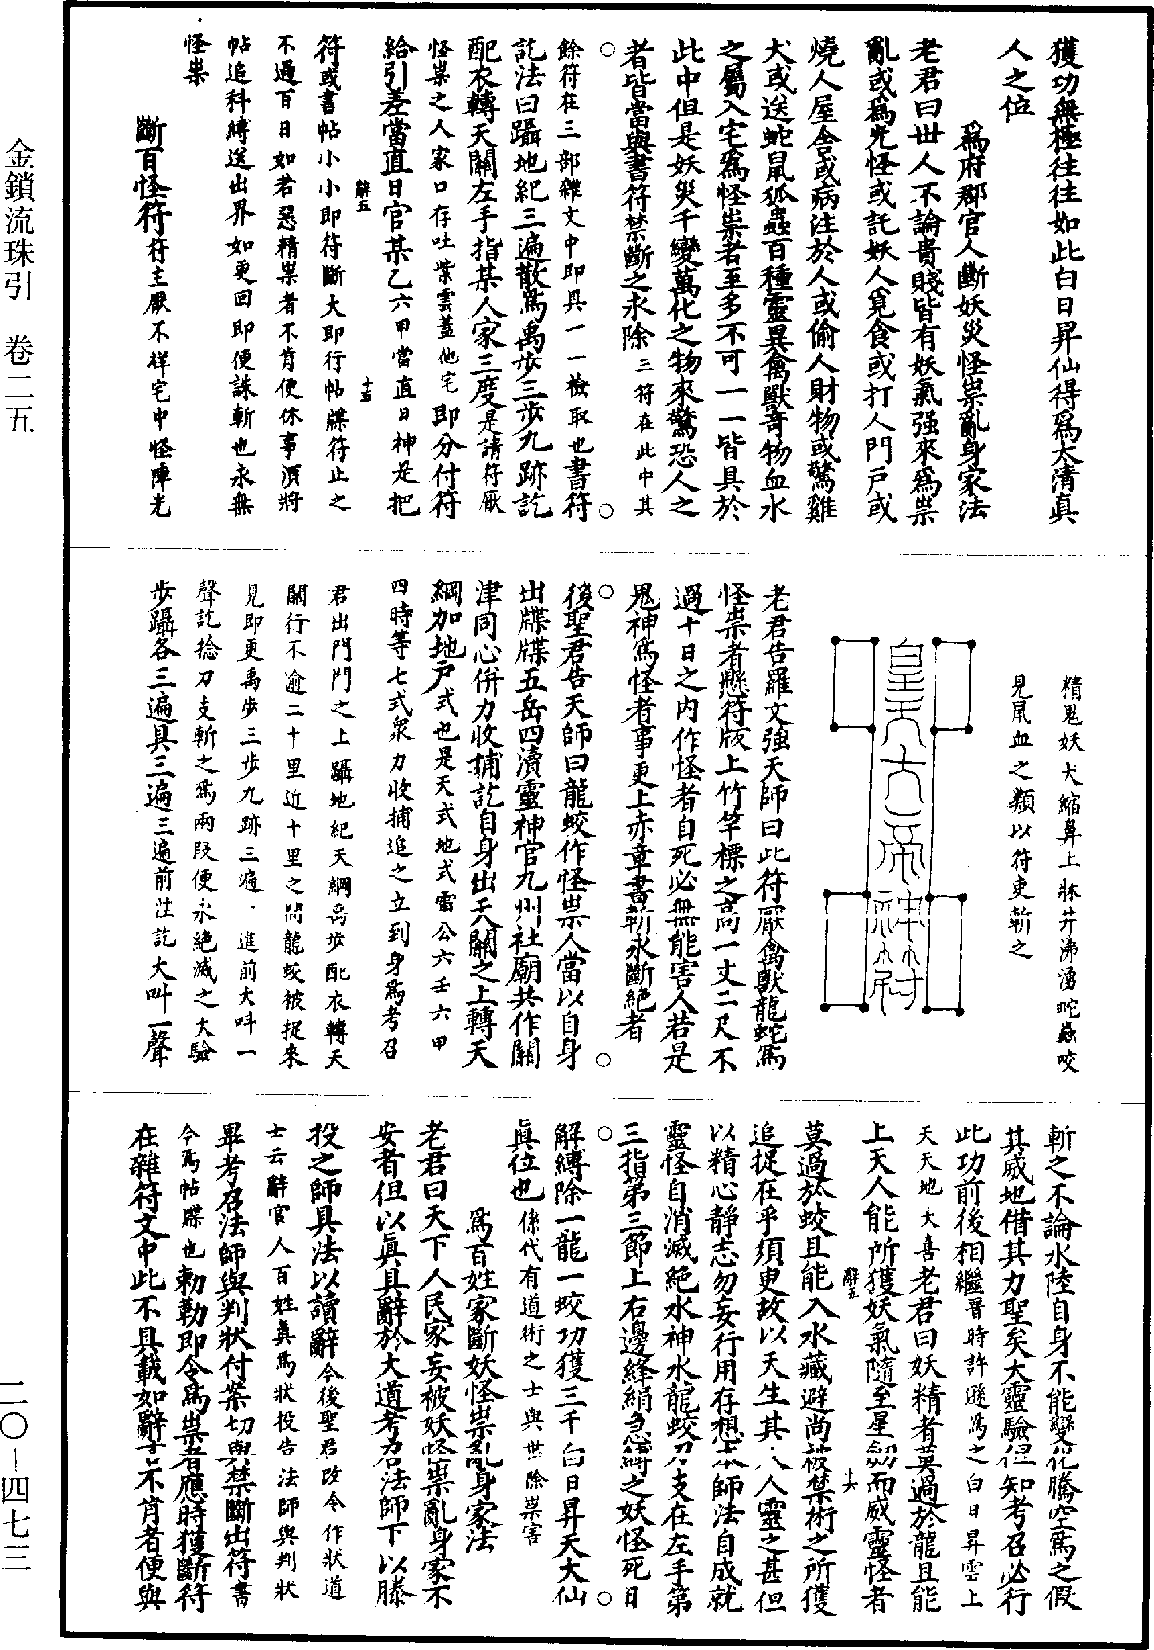 金鎖流珠引　卷二五
二〇－四七三
獲功無極往往如此白日昇仙得爲太清真
人之位
爲府郡官人斷妖災怪祟亂身家法
老君曰世人不論貴賤皆有妖氣强來爲祟
亂或爲光怪或託妖人覓食或打人門戶或
燒人屋舍或病注於人或偷人財物或驚雞
犬或送蛇鼠狐蟲百種靈異禽獸奇物血水
之屬入宅爲怪祟者至多不可一一皆具於
此中但是妖災千變萬化之物來驚恐人之
者皆當與書符禁斷之永除三符在此中其
餘符在三部雜文中即具一一檢取也書符
訖法曰躡地紀三遍散爲禹步三步九跡訖
配衣轉天關左手指某人家三度是請符厭
怪祟之人家口存吐紫雲蓋他宅即分付符
給引差當直日官某乙六甲當直日神是把
辭五
十五
符或書帖小小即符斷大即行帖牒符止之
不過百日如若惡精祟者不肯便休事須將
帖追科縛送出界如更回即便誅斬也永無
怪祟
斷百怪符符主厭不祥宅中怪陣光
精鬼妖犬縮鼻上牀井沸湧蛇蟲咬
見鼠血之類以符吏斬之
老君告羅文強天師曰此符厭禽獸龍蛇爲
怪祟者懸符版上竹竿標之高一丈二尺不
過十日之內作怪者自死必無能害人若是
鬼神爲怪者事更上赤章書斬永斷絕者
後聖君告天師曰龍蛟作怪祟人當以自身
出牒牒五岳四瀆靈神官九州社廟共作關
津同心併力收捕訖自身出天關之上轉天
綱加地戶式也是天式地式雷公六壬六甲
四時等七式衆力收捕追之立到身爲考召
君出門門之上躡地紀天綱禹步配衣轉天
關行不逾二十里近十里之間龍蛟被捉來
見即更禹步三步九跡三遍進前大呌一
聲訖捻刀支斬之爲兩段便永絕滅之大驗
步躡各三遍具三遍三遍前注訖大叫一聲
斬之不論水陸自身不能變化騰空爲之假
其威地借其力聖矣大靈驗但知考召必行
此功前後相繼晋時許遜爲之白日昇雲上
天天地大喜老君曰妖精者莫過於龍且能
上天人能所獲妖氣隨至星劒而威靈怪者
辭五
十六
莫過於蛟且能入水藏避尚被禁術之所獲
追捉在乎須臾故以天生其人人靈之甚但
以精心靜志勿妄行用存想本師法自成就
靈怪自消滅絕水神水龍蛟刀支在左手第
三指第三節上右邊絳絹急縛之妖怪死日
解縛除一龍一蛟功獲三千白日昇天大仙
眞位也係代有道術之士與世除祟害
爲百姓家斷妖怪祟亂身家法
老君曰天下人民家妄被妖怪祟亂身家不
安者但以眞具辭於大道考召法師下以滕
投之師具法以讀辭今後聖君改令作狀道
士云辭官人百姓眞爲狀投告法師與判狀
畢考召法師與判狀付案切與禁斷出符書
今爲帖牒也勅勒即令爲祟者應時獲斷符
在雜符文中此不具載如辭去不肯者便與